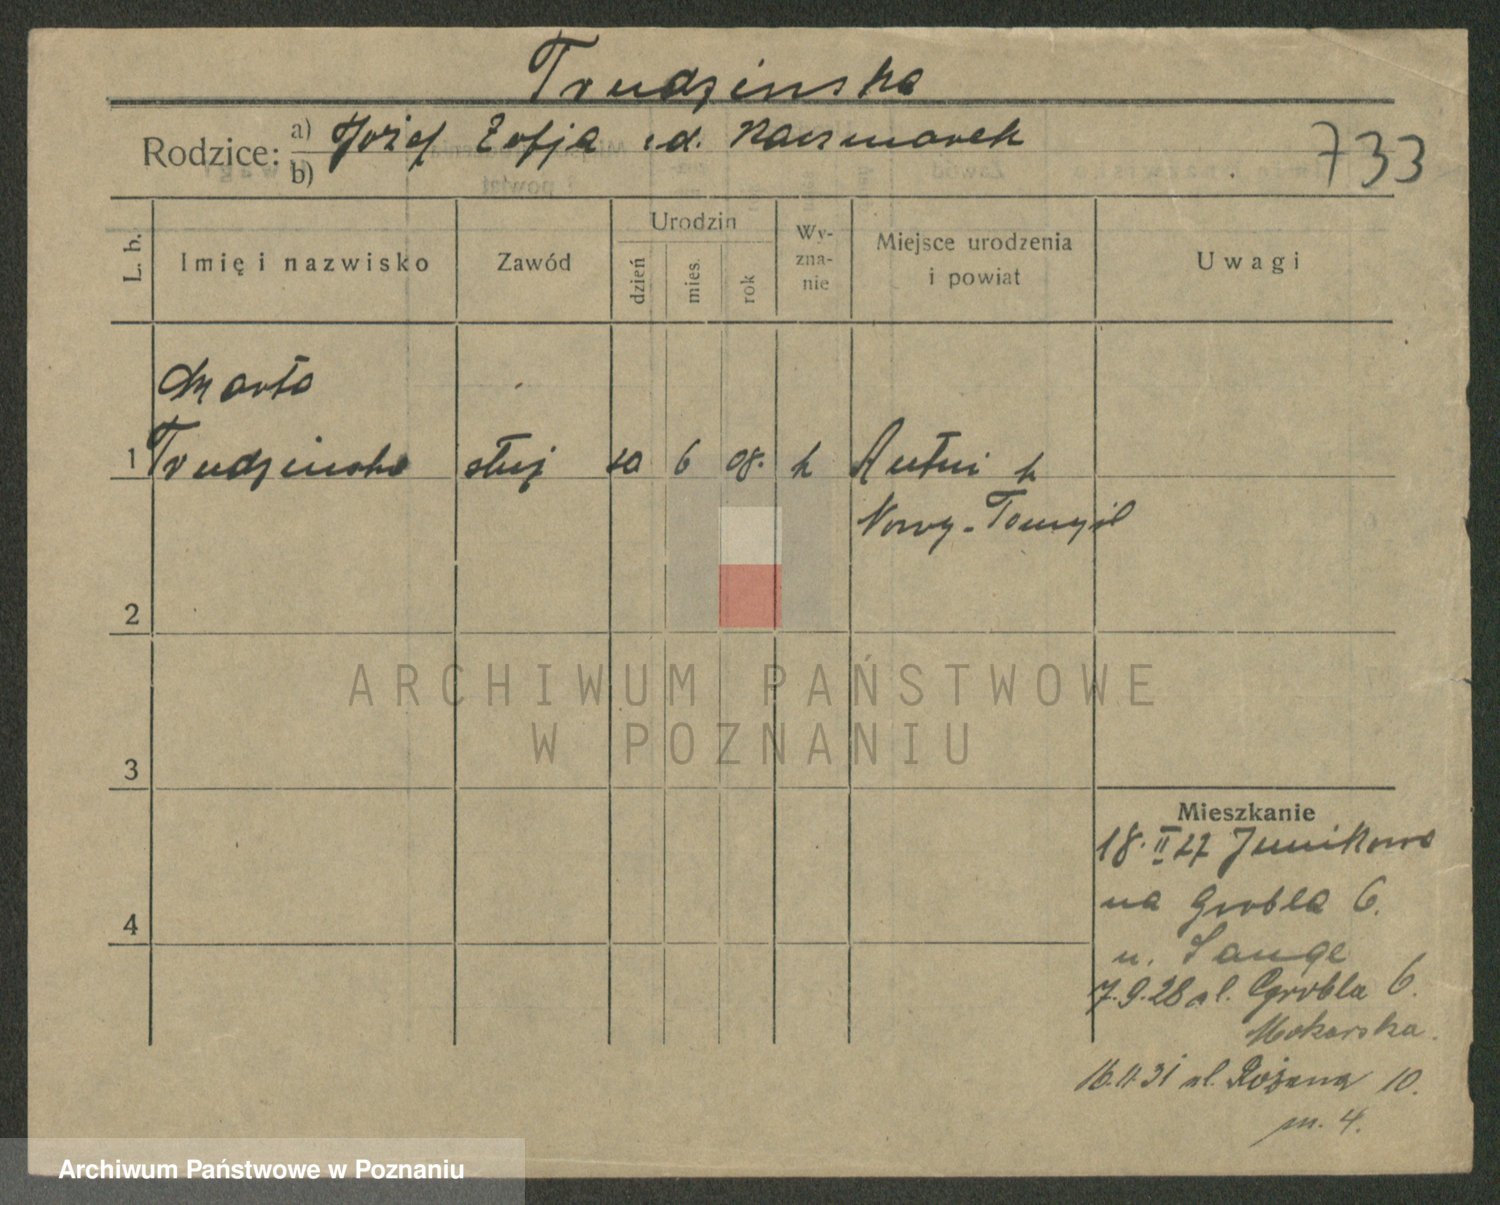 Trudzinska
Rodzice: a) Józef Zofja z d. Kaczmarek
b)
733
L. b.
Imię i nazwisko
Zawód
Urodzin
dzień
mies.
rok
Wy-
zna-
nie
Miejsce urodzenia
i powiat
Uwagi
Marta
1 Trudzinska służ 10 6 08. k
Nowy-Tomyśl
2
3
4
Mieszkanie
18. II 27 Junikowo
na Grobla 6.
u. Lange
7.9.28 ul. Grobla 6.
Mokarska.
ul. Różana 10.
m. 4.
ARCHIWUM PAŃSTWOWE
W POZNANIU
Archiwum Państwowe w Poznaniu